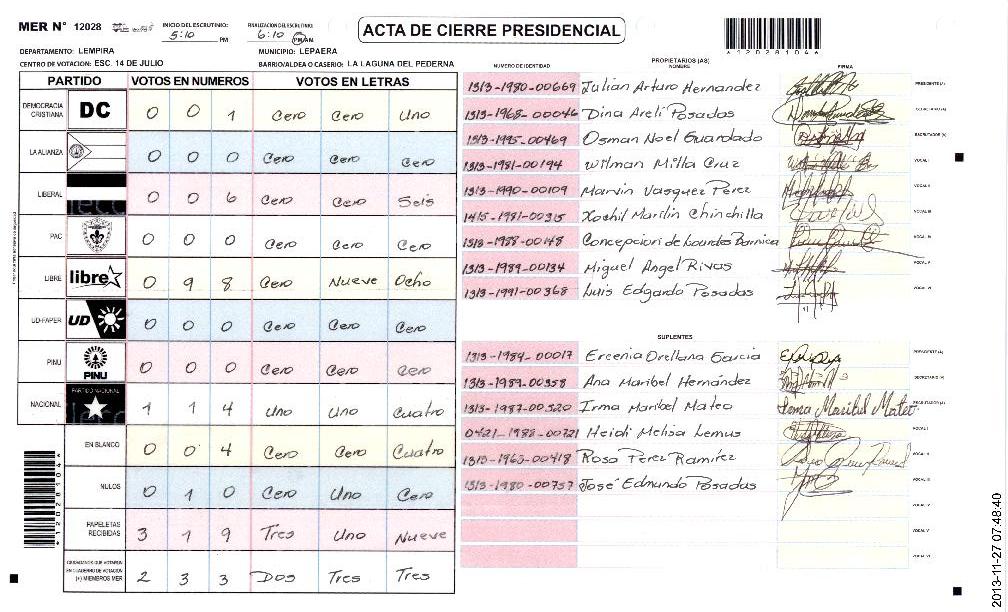 MER N° 12028
INICIO DEL ESCRUTINIO: 5:10 PM
FINALIZACION DEL ESCRUTINIO: 6:10 PM/AM
ACTA DE CIERRE PRESIDENCIAL
*12028104*
DEPARTAMENTO: LEMPIRA
MUNICIPIO: LEPAERA
CENTRO DE VOTACION: ESC. 14 DE JULIO
BARRIO/ALDEA O CASERIO: LA LAGUNA DEL PEDERNA
PARTIDO VOTOS EN NUMEROS VOTOS EN LETRAS
DEMOCRACIA CRISTIANA DC 0 0 1 Cero Cero Uno
LA ALIANZA 0 0 0 Cero Cero Cero
LIBERAL 0 0 6 Cero Cero Seis
PAC 0 0 0 Cero Cero Cero
LIBRE libre 0 9 8 Cero Nueve Ocho
UD-FAPER UD 0 0 0 Cero Cero Cero
PINU PINU 0 0 0 Cero Cero Cero
NACIONAL PARTIDO NACIONAL 1 1 4 Uno Uno Cuatro
EN BLANCO 0 0 4 Cero Cero Cuatro
NULOS 0 1 0 Cero Uno Cero
PAPELETAS RECIBIDAS 3 1 9 Tres Uno Nueve
CIUDADANOS QUE VOTARON EN CUADERNO DE VOTACION (+) MIEMBROS MER 2 3 3 Dos Tres Tres
*12028104*
PROPIETARIOS (AS)
NUMERO DE IDENTIDAD NOMBRE FIRMA
1313-1980-00669 Julian Arturo Hernandez PRESIDENTE (A)
1313-1968-00046 Dina Areli Posadas SECRETARIO (A)
1313-1995-00469 Osman Noel Guardado ESCRUTADOR (A)
1313-1981-00194 Wilman Milla Cruz VOCAL I
1313-1990-00109 Marvin Vasquez Perez VOCAL II
1415-1981-00315 Xochil Marilin Chinchilla VOCAL III
1313-1988-00148 Concepcion de Lourdes Barnica VOCAL IV
1313-1989-00134 Miguel Angel Rivas VOCAL V
1313-1991-00368 Luis Edgardo Posadas VOCAL VI
SUPLENTES
1313-1984-00017 Ercenia Orellana Garcia PRESIDENTE (A)
1313-1989-00358 Ana Maribel Hernández SECRETARIO (A)
1313-1987-00320 Irma Maribel Mateo Irma Maribel Mateo ESCRUTADOR (A)
0421-1988-00721 Heidi Melisa Lemus VOCAL I
1313-1963-00418 Rosa Perez Ramírez VOCAL II
1313-1980-00757 José Edmundo Posadas VOCAL III
VOCAL IV
VOCAL V
VOCAL VI
2013-11-27 07:48:40